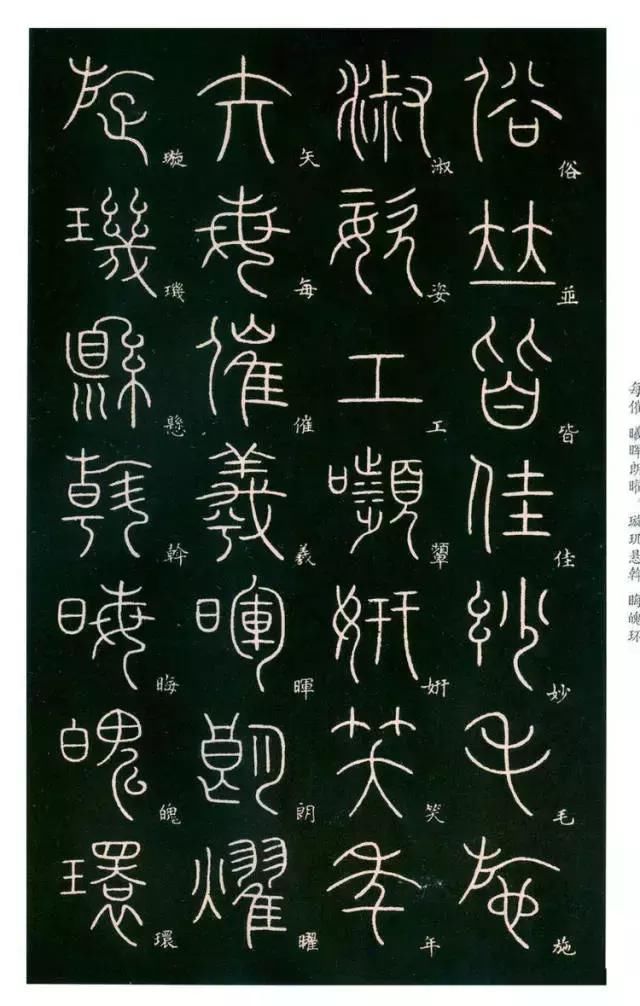 俗並皆佳妙毛施
淑姿工顰妍笑年
矢每催羲暉朗曜
璇璣懸斡晦魄環
每催 曦晖朗曜，璇玑悬斡 晦魄环